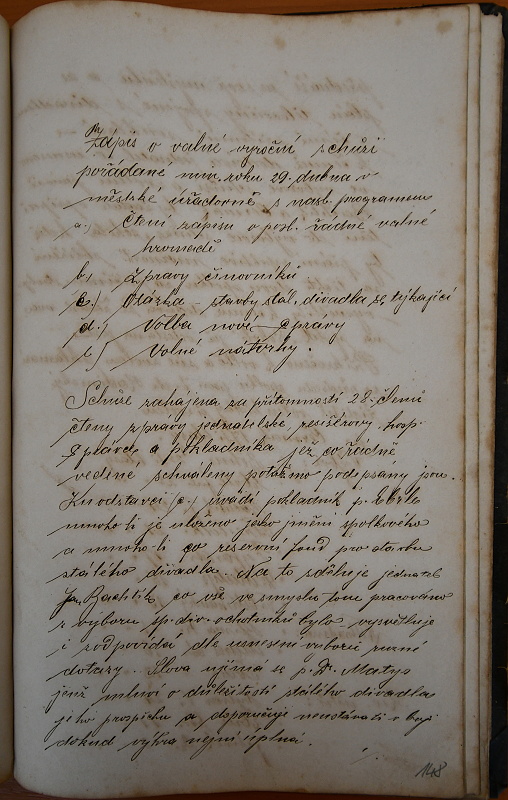 Zápis o valné výroční schůzi
pořádané min. roku 29. dubna v
městské úřadovně s násl. programem
a.) Čtení zápisu o posl. řádné valné
hromadě
b.) Zprávy činovníků
c.) Otázka - stavby stál. divadla se týkající
d.) Volba nové správy
e.) Volné návrhy.
Schůze zahájena za přítomnosti 28. členů
čteny zprávy jednatelské, resišérovy, hosp.
správce a pokladníka jež co řádně
vedené schváleny potažmo podepsány jsou.
Ku odstavci c.) uvádí pokladník p.
mnoho-li je uloženo jako jmění spolkového
a mnoho-li co reservní fond pro stavbu
stálého divadla. Na to sděluje jednatel
Jan Bachtík, co vše ve smyslu tom pracováno
z výboru sp. div. ochotníků bylo vysvětluje
i zodpovídá dle usnesení výborů různé
dotazy. Slova ujímá se p. Dr. Matys
jenž mluví o důležitosti stálého divadla
jeho prospěchu a doporučuje neustávati v boji
dokud výhra není úplná.
148